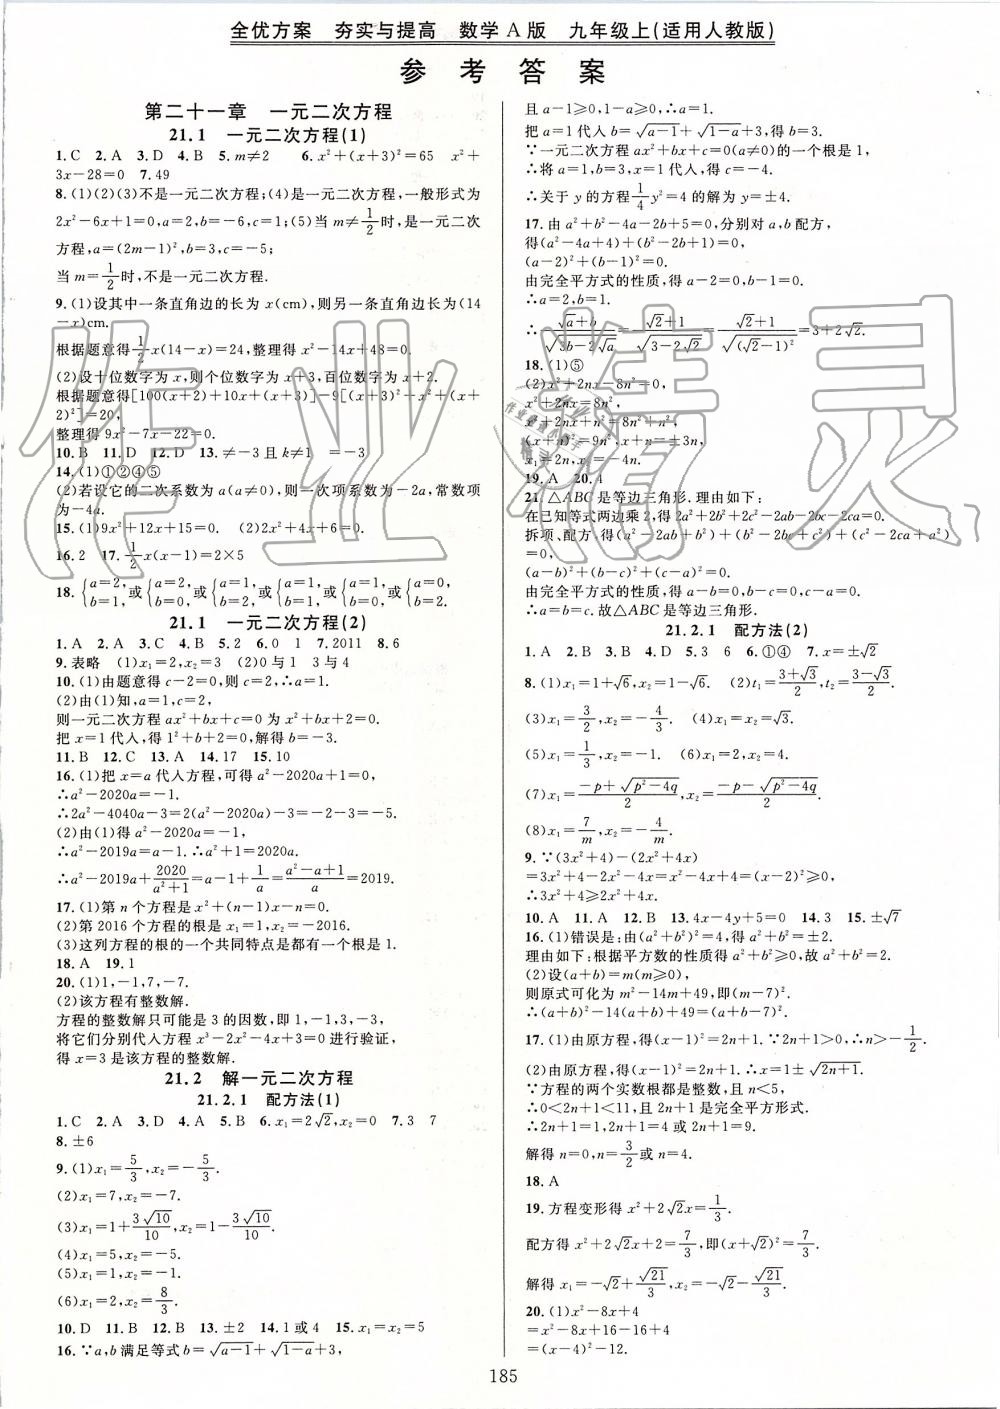 全优方案 夯实与提高 数学A版 九年级上(适用人教版)
参考答案
第二十一章 一元二次方程
21.1 一元二次方程(1)
1.C 2.A 3.D 4.B 5.m≠2 6.x²+(x+3)²=65 x²+
3x-28=0 7.49
8.(1)(2)(3)不是一元二次方程;(4)是一元二次方程,一般形式为
2x²-6x+1=0,a=2,b=-6,c=1;(5)当 m≠1/2时,是一元二次
方程,a=(2m-1)²,b=3,c=-5;
当 m=1/2时,不是一元二次方程.
9.(1)设其中一条直角边的长为 x(cm),则另一条直角边长为(14
-x)cm.
根据题意得1/2x(14-x)=24,整理得 x²-14x+48=0.
(2)设十位数字为 x,则个位数字为 x+3,百位数字为 x+2.
根据题意得[100(x+2)+10x+(x+3)]-9[(x+3)²+x²+(x+
2)²]=20,
整理得 9x²-7x-22=0.
10.B 11.D 12.D 13.≠-3且k≠1 =-3
14.(1)①②④⑤
(2)若设它的二次系数为 a(a≠0),则一次项系数为-2a,常数项
为-4a.
15.(1)9x²+12x+15=0. (2)2x²+4x-6=0.
16.2 17.1/2x(x-1)=2×5
18.{a=2,b=1,或{a=2,b=0,或{a=1,b=2,或{a=1,b=1,或{a=0,b=2.
21.1 一元二次方程(2)
1.A 2.A 3.C 4.B 5.2 6.0 1 7.2011 8.6
9.表略 (1)x₁=2,x₂=3 (2)0与1 3与4
10.(1)由题意得 c-2=0,则 c=2,∴a=1.
(2)由(1)知,a=1,c=2,
则一元二次方程 ax²+bx+c=0为 x²+bx+2=0.
把 x=1代人,得 1²+b+2=0,解得 b=-3.
11.B 12.C 13.A 14.17 15.10
16.(1)把 x=a代人方程,可得 a²-2020a+1=0,
∴a²-2020a=-1.
∴2a²-4040a-3=2(a²-2020a)-3=-2-3=-5.
(2)由(1)得 a²-2020a=-1,
∴a²-2019a=a-1.∴a²+1=2020a.
∴a²-2019a+2020/(a²+1)=a-1+1/a=(a²-a+1)/a=2019.
17.(1)第 n个方程是 x²+(n-1)x-n=0.
(2)第 2016个方程的根是 x₁=1,x₂=-2016.
(3)这列方程的根的一个共同特点是都有一个根是 1.
18.A 19.1
20.(1)1,-1,7,-7.
(2)该方程有整数解.
方程的整数解只可能是 3的因数,即 1,-1,3,-3,
将它们分别代人方程 x³-2x²-4x+3=0进行验证,
得 x=3是该方程的整数解.
21.2 解一元二次方程
21.2.1 配方法(1)
1.C 2.A 3.D 4.A 5.B 6.x₁=2√2,x₂=0 7.3 7
8.±6
9.(1)x₁=5/3,x₂=-5/3.
(2)x₁=7,x₂=-7.
(3)x₁=1+3√10/10,x₂=1-3√10/10.
(4)x₁=5,x₂=-5.
(5)x₁=1,x₂=-1.
(6)x₁=2,x₂=8/3.
10.D 11.B 12.B 13.±2 14.1或4 15.x₁=x₂=5
16.∵a,b满足等式 b=√(a-1)+√(1-a)+3,
且 a-1≥0,1-a≥0,∴a=1.
把 a=1代人 b=√(a-1)+√(1-a)+3,得 b=3.
∵一元二次方程 ax²+bx+c=0(a≠0)的一个根是 1,
∴将 a=1,b=3,x=1代人,得 c=-4.
∴关于 y的方程1/4y²=4的解为 y=±4.
17.由 a²+b²-4a-2b+5=0,分别对 a,b配方,
得(a²-4a+4)+(b²-2b+1)=0.
(a-2)²+(b-1)²=0.
由完全平方式的性质,得 a-2=0,b-1=0.
∴a=2,b=1.
∴(√a+b)/√(3b-2√a)=(√2+1)/√(3-2√2)=(√2+1)/√((√2-1)²)=3+2√2.
18.(1)⑤
(2)x²+2nx-8n²=0,
x²+2nx=8n²,
x²+2nx+n²=8n²+n²,
(x+n)²=9n²,x+n=±3n,
x₁=2n,x₂=-4n.
19.A 20.4
21.△ABC是等边三角形.理由如下:
在已知等式两边乘 2,得 2a²+2b²+2c²-2ab-2bc-2ca=0.
拆项、配方,得(a²-2ab+b²)+(b²-2bc+c²)+(c²-2ca+a²)
=0,
(a-b)²+(b-c)²+(c-a)²=0.
由完全平方式的性质,得 a-b=0,b-c=0,c-a=0.
∴a=b=c.故△ABC是等边三角形.
21.2.1 配方法(2)
1.A 2.B 3.B 4.D 5.3 6 6.①④ 7.x=±√2
8.(1)x₁=1+√6,x₂=1-√6. (2)t₁=(3+√3)/2,t₂=(3-√3)/2.
(3)x₁=3/2,x₂=-4/3. (4)x₁=x₂=√3.
(5)x₁=1/3,x₂=-1. (6)x₁=2,x₂=4.
(7)x₁=(-p+√(p²-4q))/2,x₂=(-p-√(p²-4q))/2.
(8)x₁=7/m,x₂=-4/m.
9.∵(3x²+4)-(2x²+4x)
=3x²+4-2x²-4x=x²-4x+4=(x-2)²≥0,
∴3x²+4≥2x²+4x.
10.A 11.A 12.B 13.4x-4y+5=0 14.3 15.±√7
16.(1)错误是:由(a²+b²)²=4,得 a²+b²=±2.
理由如下:根据平方数的性质得 a²+b²≥0,故 a²+b²=2.
(2)设(a+b)=m(m≥0),
则原式可化为 m²-14m+49,即(m-7)².
∴(a+b)²-14(a+b)+49=(a+b-7)².
17.(1)由原方程,得(x-1)²=2n+1.∵2n+1>0,∴n>-1/2.
(2)由原方程,得(x-1)²=2n+1,∴x=1±√(2n+1).
∵方程的两个实数根都是整数,且 n<5,
∴0<2n+1<11,且 2n+1是完全平方形式.
∴2n+1=1,2n+1=4或 2n+1=9.
解得 n=0,n=3/2或 n=4.
18.A
19.方程变形得 x²+2√2x=1/3.
配方得 x²+2√2x+2=7/3,即(x+√2)²=7/3.
解得 x₁=-√2+√21/3,x₂=-√2-√21/3.
20.(1)x²-8x+4
=x²-8x+16-16+4
=(x-4)²-12.
185
作业精灵